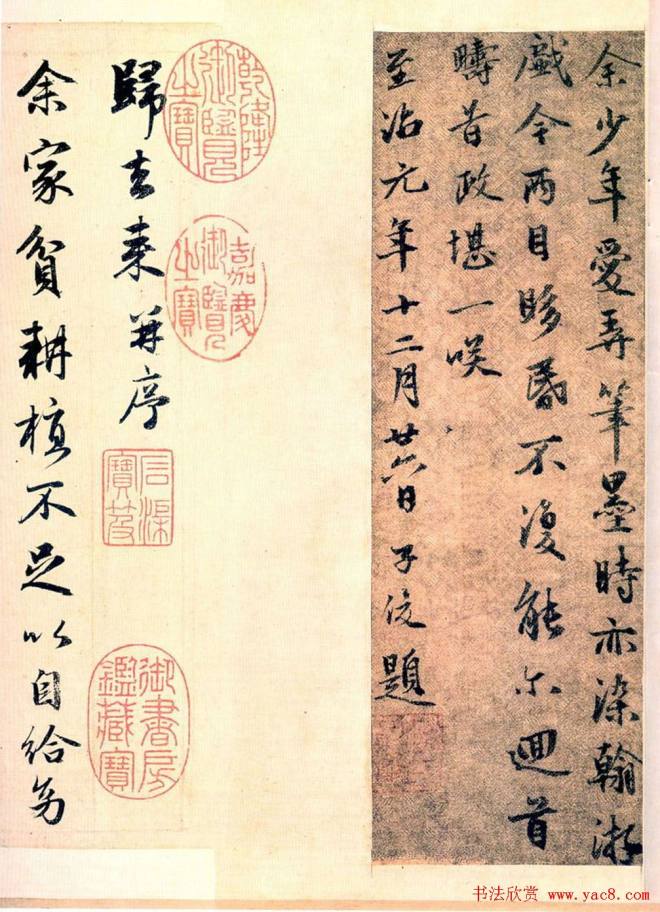 余少年愛弄筆墨時亦染翰游
戲今兩目眵昏不復能尔迴首
疇昔政堪一咲
至治元年十二月廿六日子俊題
乾隆御覽之寶
嘉慶御覽之寶
歸去来并序
石渠寶笈
御書房鑑藏寶
余家貧耕植不足以自給幼
书法欣赏 www.yac8.com